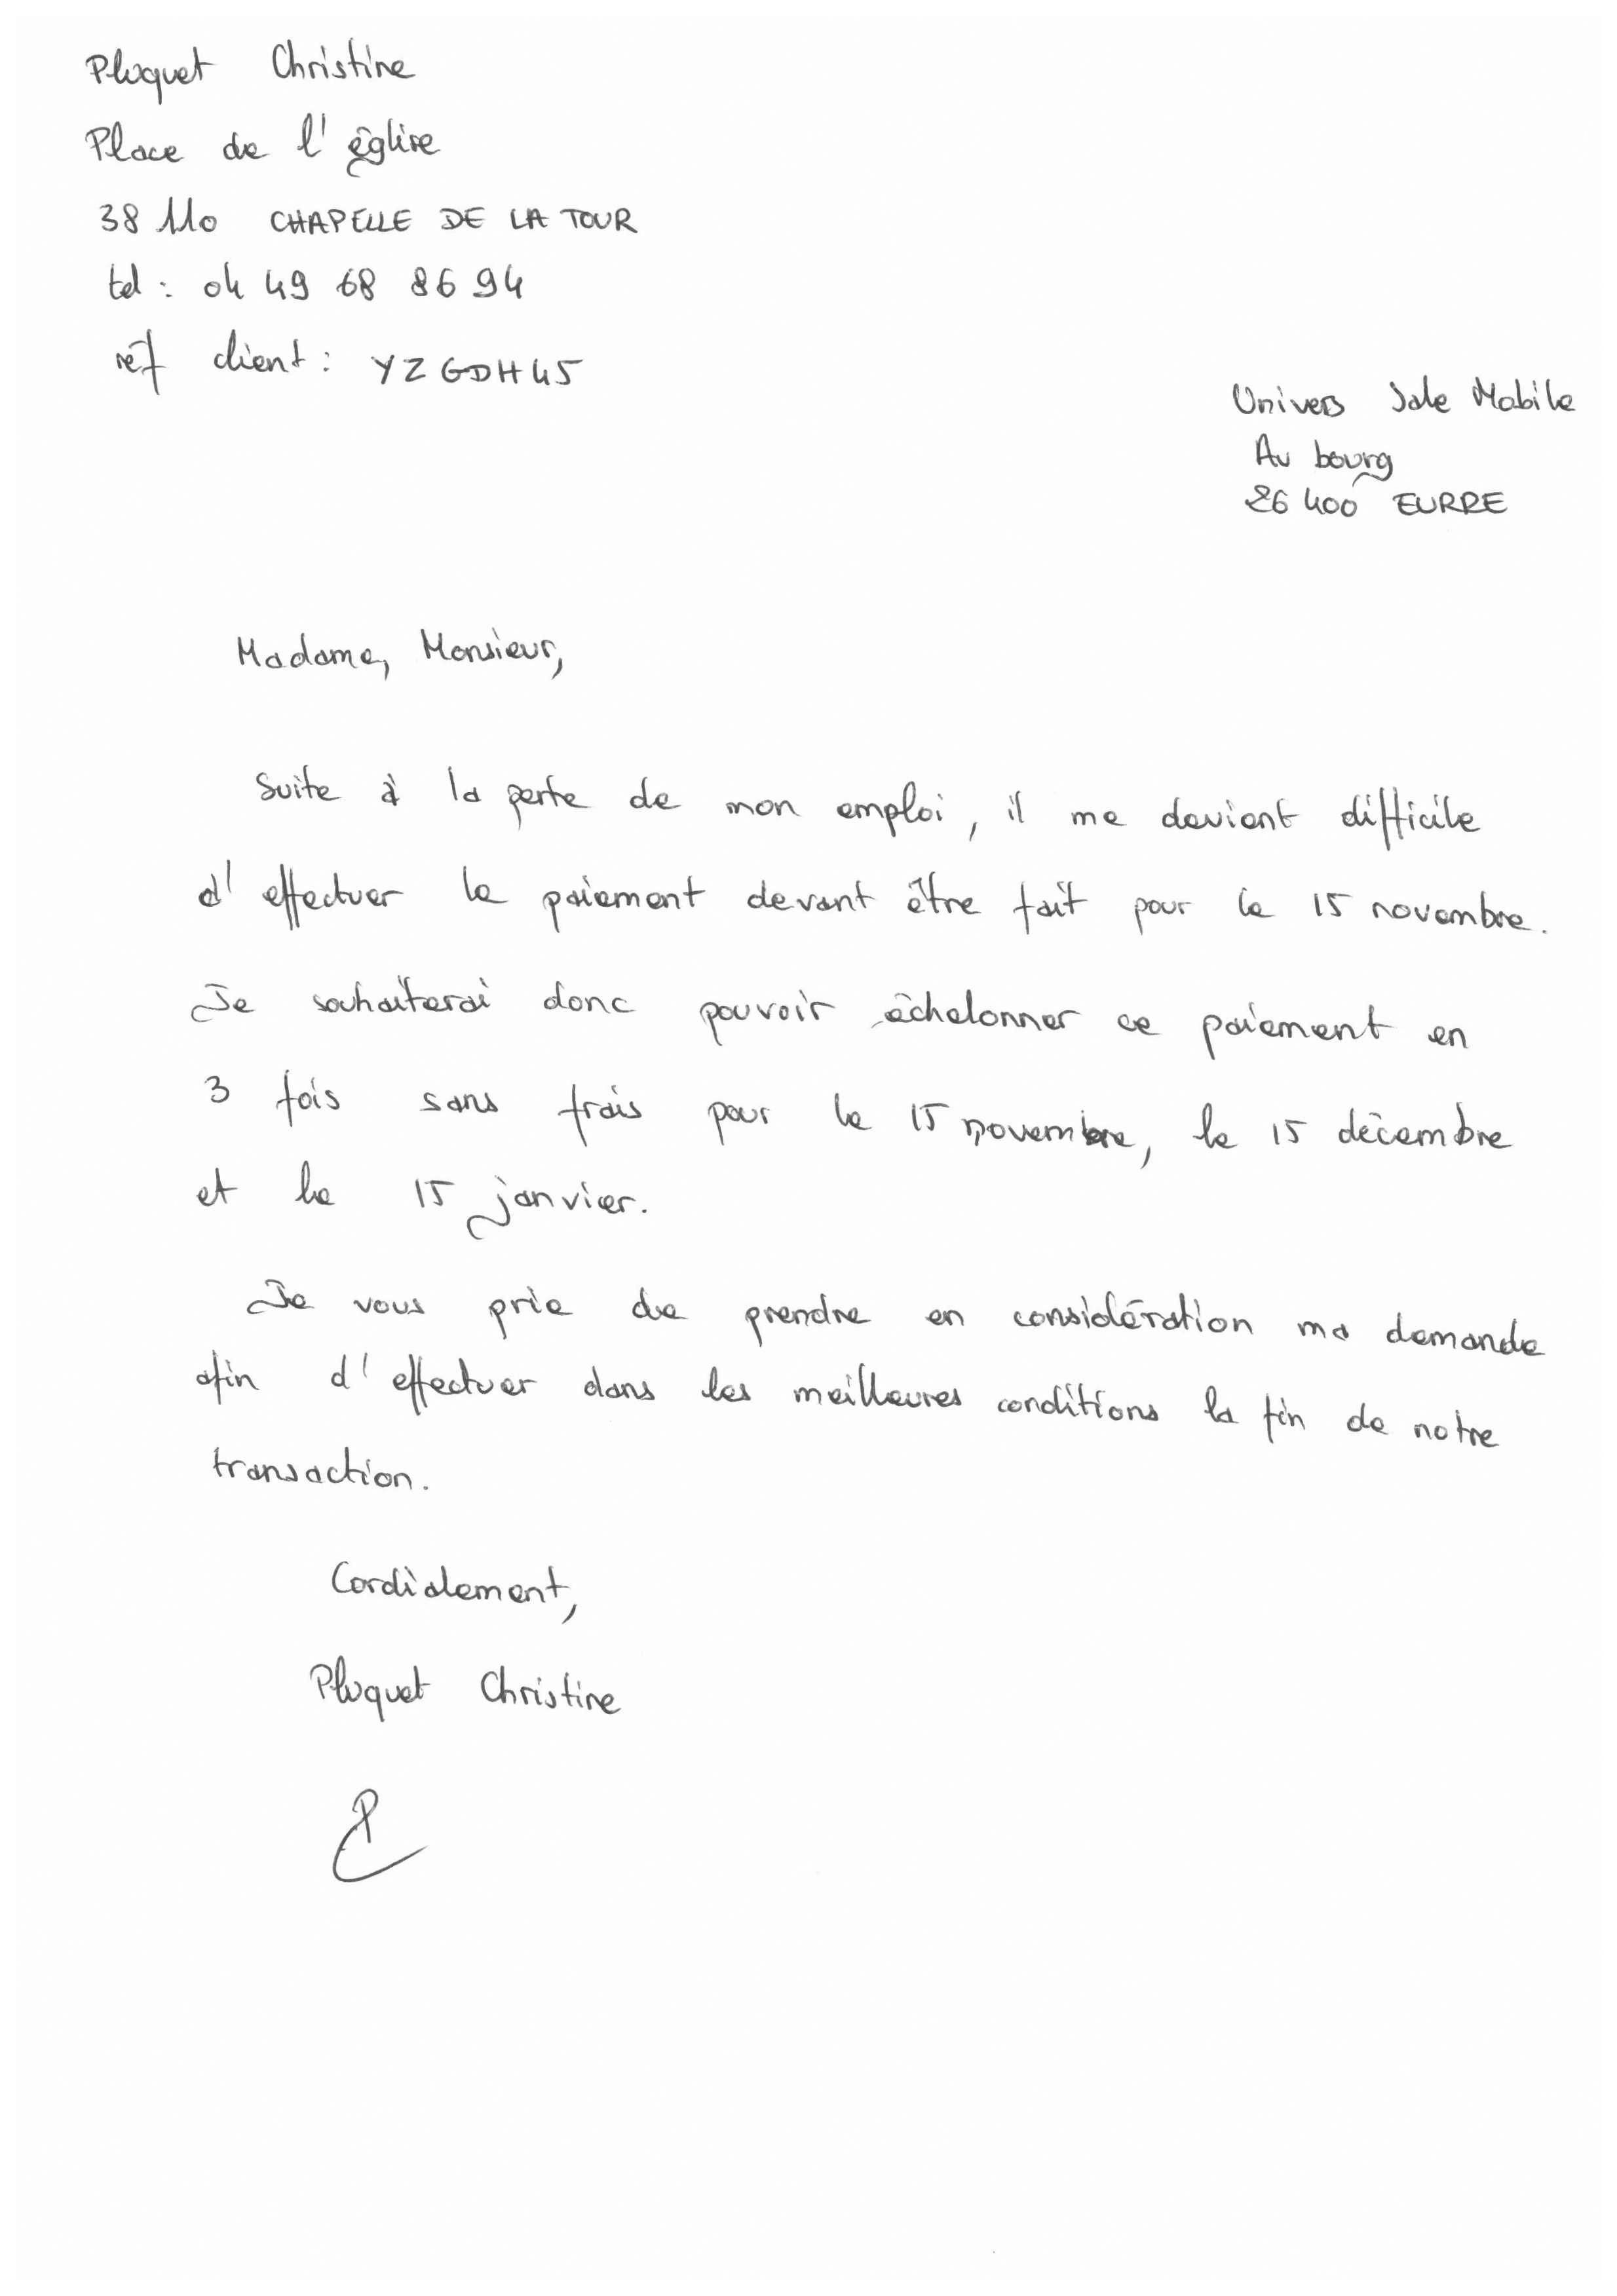 Pluquet Christine
Place de l'église
38 110 CHAPELLE DE LA TOUR
tel : 04 49 68 86 94
réf client : YZGDH45
Univers Sale Mobile
Au bourg
26 400 EURRE
Madame, Monsieur,
Suite à la perte de mon emploi, il me devient difficile
d'effectuer le paiement devant être fait pour le 15 novembre.
Je souhaiterai donc pouvoir échelonner ce paiement en
3 fois sans frais pour le 15 novembre, le 15 décembre
et le 15 janvier.
Je vous prie de prendre en considération ma demande
afin d'effectuer dans les meilleures conditions la fin de notre
transaction.
Cordialement,
Pluquet Christine